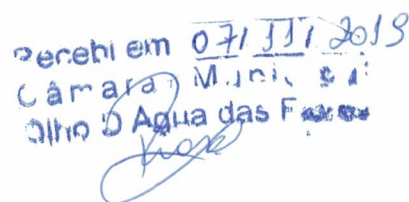 Recebi em 07/11/2019
Câmara Muni
Olho D Agua das F